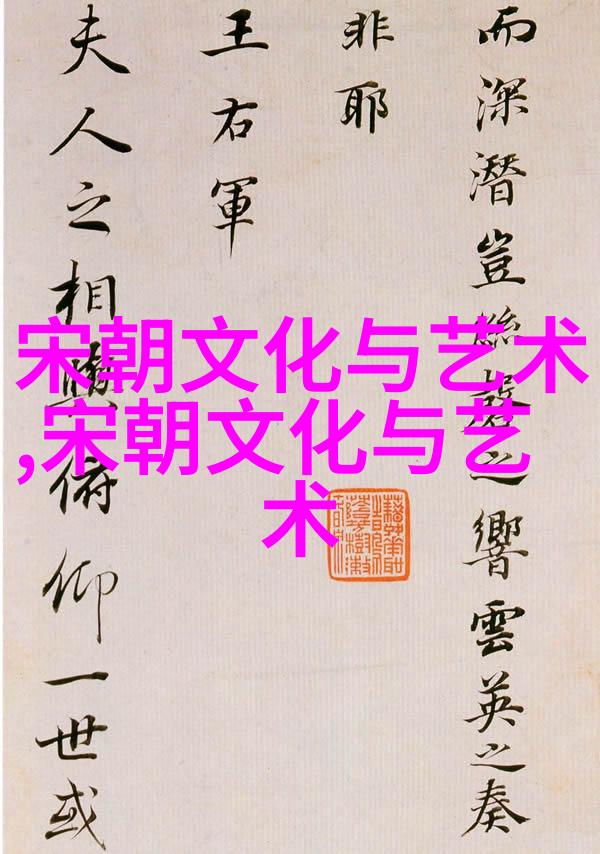 宋朝文化与艺术
,宋朝文化与艺
术
而深潜豈絲之響雲英之奏
非耶
王右軍
夫人之相與俯仰一世或